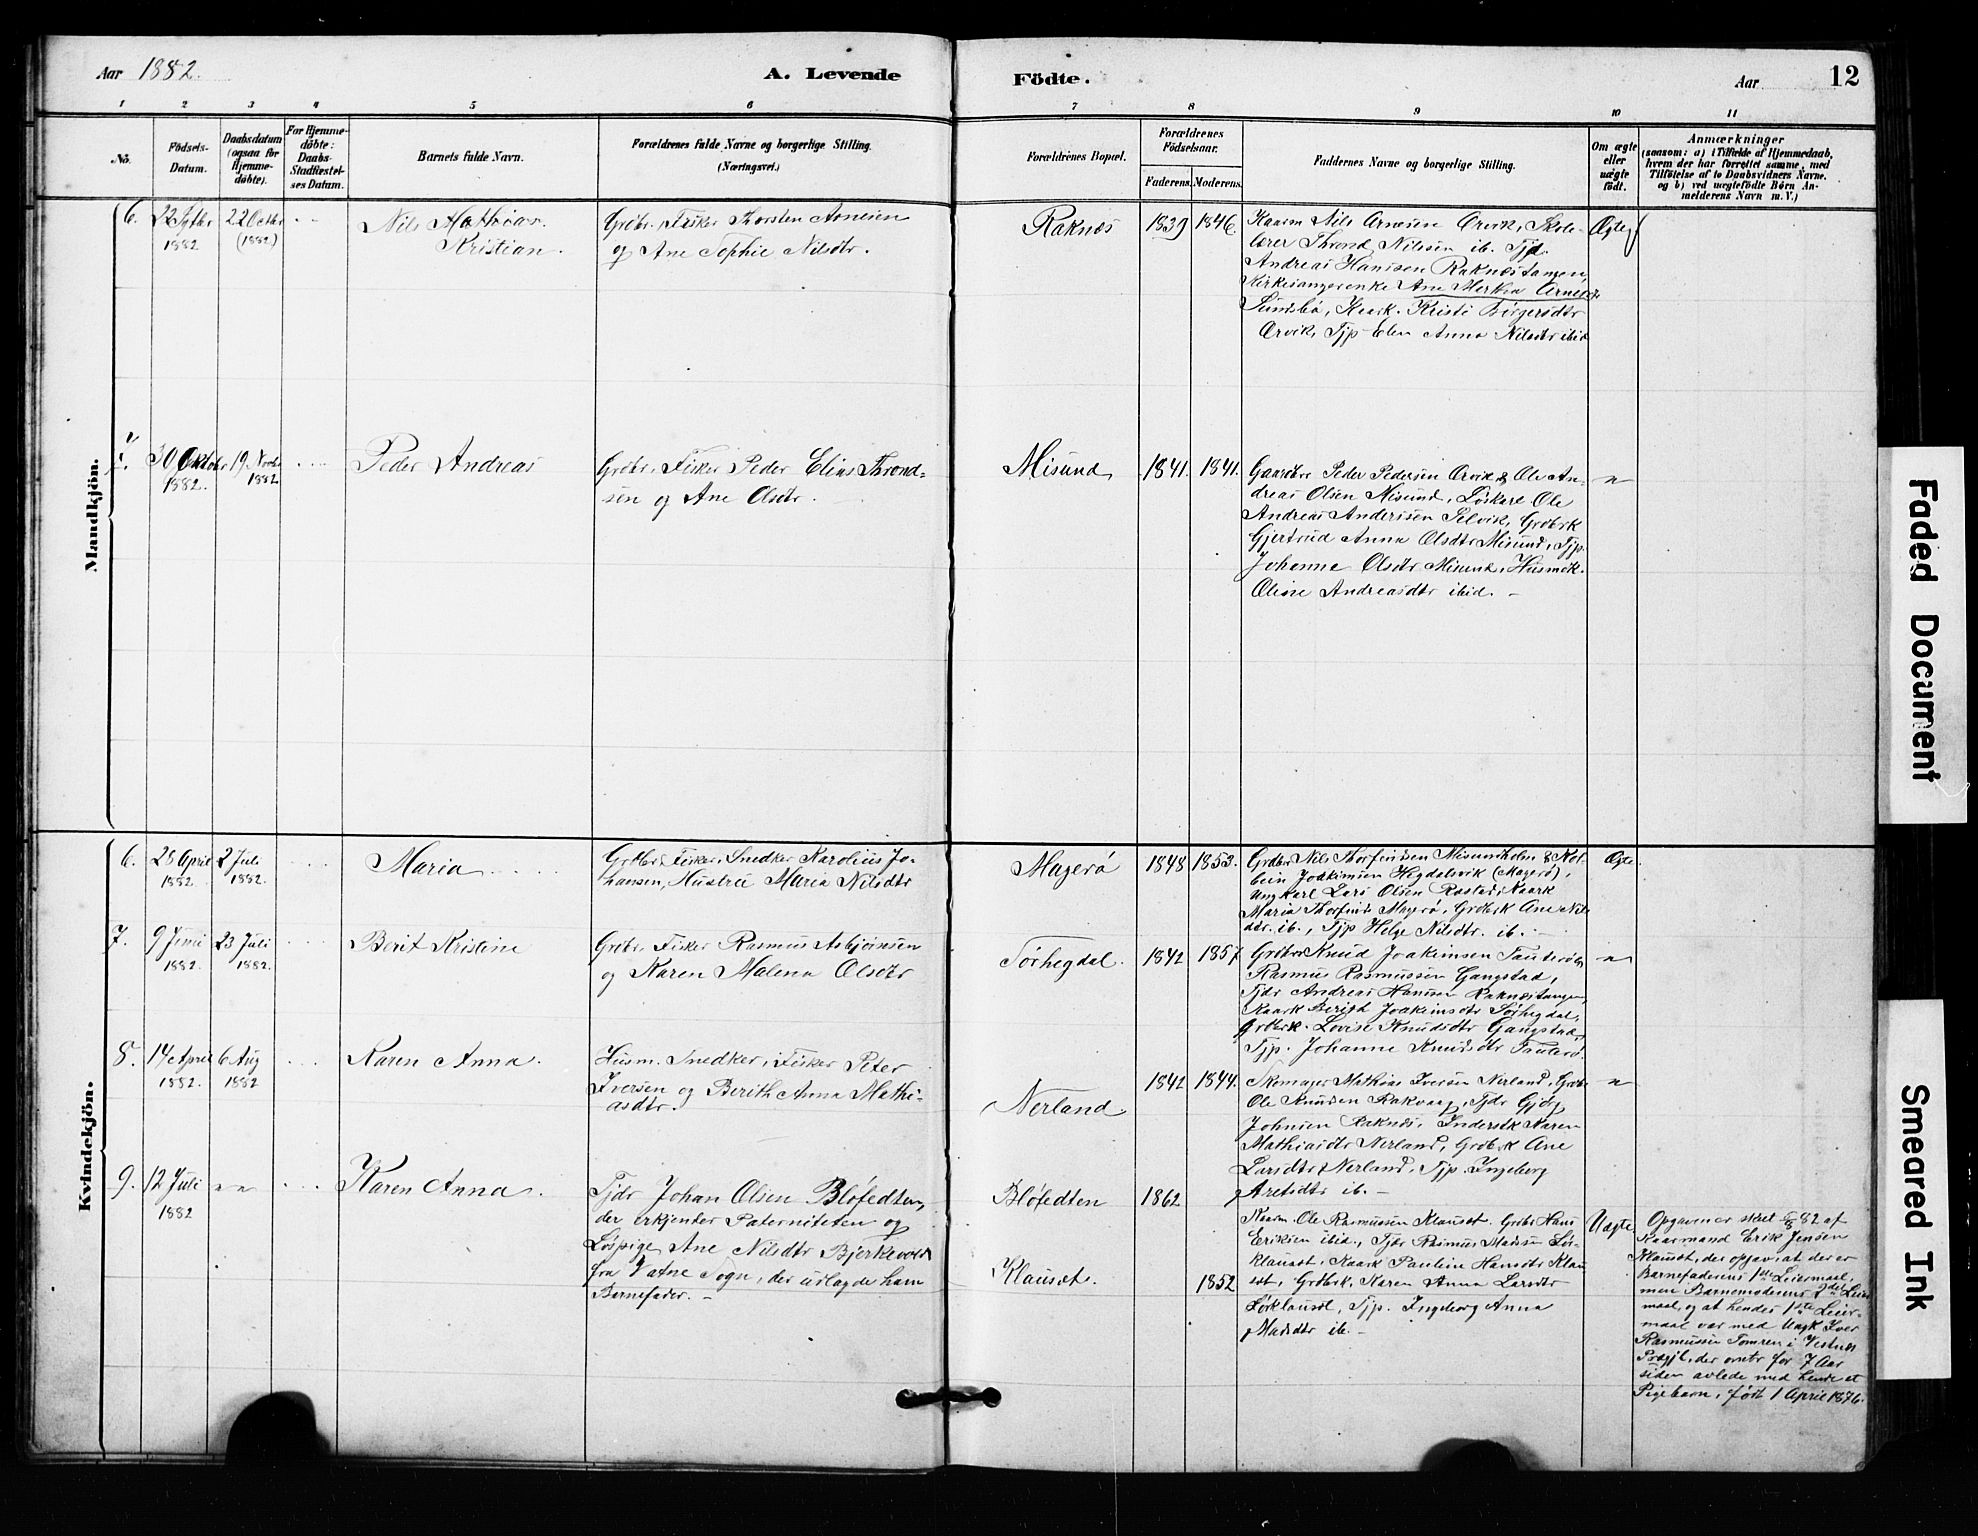 Aar 1882.
A. Levende
Födte.
Aar
12
1
2
3
4
5
6
7
8
9
10
11
No.
Födsels-
Datum.
Daabsdatum
(ogsaa for
Hjemme-
døbte).
For Hjemme-
døbte:
Daabs-
Stadfæstel-
ses Datum.
Barnets fulde Navn.
Forældrenes fulde Navne og borgerlige Stilling.
(Næringsvei.)
Forældrenes Bopæl.
Forældrenes
Födselsaar.
Faderens.
Moderens.
Faddernes Navne og borgerlige Stilling.
Om ægte
eller
uægte
födt.
Anmærkninger
(saasom: a) i Tilfælde af Hjemmedaab,
hvem der har forrettet samme, med
Tilföielse af to Daabsvidners Navne.
og b) ved uægtefödte Börn An-
melderens Navn m. V.)
Mandkjön.
6.
22 Sptbr
1882
22 Octbr
(1882)
Nils Mathias
Kristian.
Grdbr. Fisker Thorsten Arnesen
og Ane Sophie Nilsdtr.
Raknæs
1839
1846.
Kaarm Nils Arnesen Ørvik, Skole-
lærer Thrond Nilssen ib. Tjd.
Andreas Hanssen Raknæstangen,
Kirkesangerenke Ane Arnesdtr
Sundsbø, Kaark. Kristi Børgersdtr
Ørvik, Tjp Elen Anna Nilsdtr ibid
Ægte
7.
30 Oktobr
1882.
19 Novbr
1882
Peder Andreas
Grdbr. Fisker Peder Elias Thrond-
sen og Ane Olsdtr.
Misund
1841.
1841.
Gaardbr Peder Pedersen Ørvik & Ole An-
dreas Olsen Misund, Løskarl Ole
Andreas Anderssen Selvik, Grdbrk
Gjertrud Anna Olsdtr Misund, Tjp.
Johanne Olsdtr Misund, Husmdk.
Oline Andreasdtr ibid. –
〃
Kvindekjön.
6.
28 April
1882
2 Juli
1882.
Maria
Grdbr. Fisker, Snedker Karolius Jo-
hansen, Hustru Maria Nilsdtr
Magerø
1848
1853.
Grdbr Nils Thorfindsen Misundholm & Kol-
bein Joakimsen Hegdalsvik (Magerø),
Ungkarl Lars Olsen Røstad, Kaark
Maria Thorfinds Magerø, Grdbrk Ane Nils
dtr. ib., Tjp Helge Nilsdtr. ib. –
Ægte
7.
9 Juni
1882.
23 Juli
1882.
Berit Kristine
Grdbr. Fisker Rasmus Asbjørnsen
og Karen Malena Olsdtr
Sørhegdal.
1842
1857.
Grdbr Knud Joakimsen Tauterø
Rasmus Rasmussen Gangstad,
Tjdr Andreas Hanssen Raknæstangen,
Kaark Berith Joakimsdtr Sørhegdal,
Grdbrk. Lovise Knudsdtr Gangstad,
Tjp. Johanne Knudsdtr Tauterø.
〃
8.
14 April
1882.
6 Aug
1882
Karen Anna.
Husm. Snedker, Fisker Peter
Iversen og Berith Anna Mathi-
asdtr.
Nerland
1842
1844.
Skomager Mathias Iversen Nerland, Grdbr
Ole Knudsen Rakvaag, Tjdr Gjørg
Johnsen Raknæs, Inderstk Karen
Mathiasdtr Nerland, Grdbrk Ane
Larsdtr Nerland, Tjp. Ingeborg
Aretsdtr ib. –
〃
9.
12 Juli
1882
〃 〃
Karen Anna
Tjdr Johan Olsen Bløfedten,
der erkjender Paterniteten og
Løspige Ane Nilsdtr Bjerkevold
fra Vatne Sogn, der udlagde ham
Barnefader. –
Bløfedten
Klauset.
1862
1852
Kaarm Ole Rasmussen Klauset. Grdbr Hans
Eriksen ibid., Tjdr Rasmus Madsen Lør-
klauset, Kaark Pauline Hansdtr Klau
set, Grdbrk. Karen Anna Larsdtr
Lørklauset, Tjp. Ingeborg Anna
Madsdtr ib. –
Uægte
Opgaven er skeet 82 af
Kaarmand Erik Jensen
Klauset, der opgav, at der er
Barnefaderens 1ste Leiermaal,
men Barnemoderens 2det Leier
maal, og at hendes 1ste Leier-
maal var med Ungk Iver
Rasmussen Tomren i Vestnæs
Prægjl., der omtr for 7 Aar
siden avlede med hende et
Pigebarn, født 1 April 1876.
Faded Document
Smeared Ink